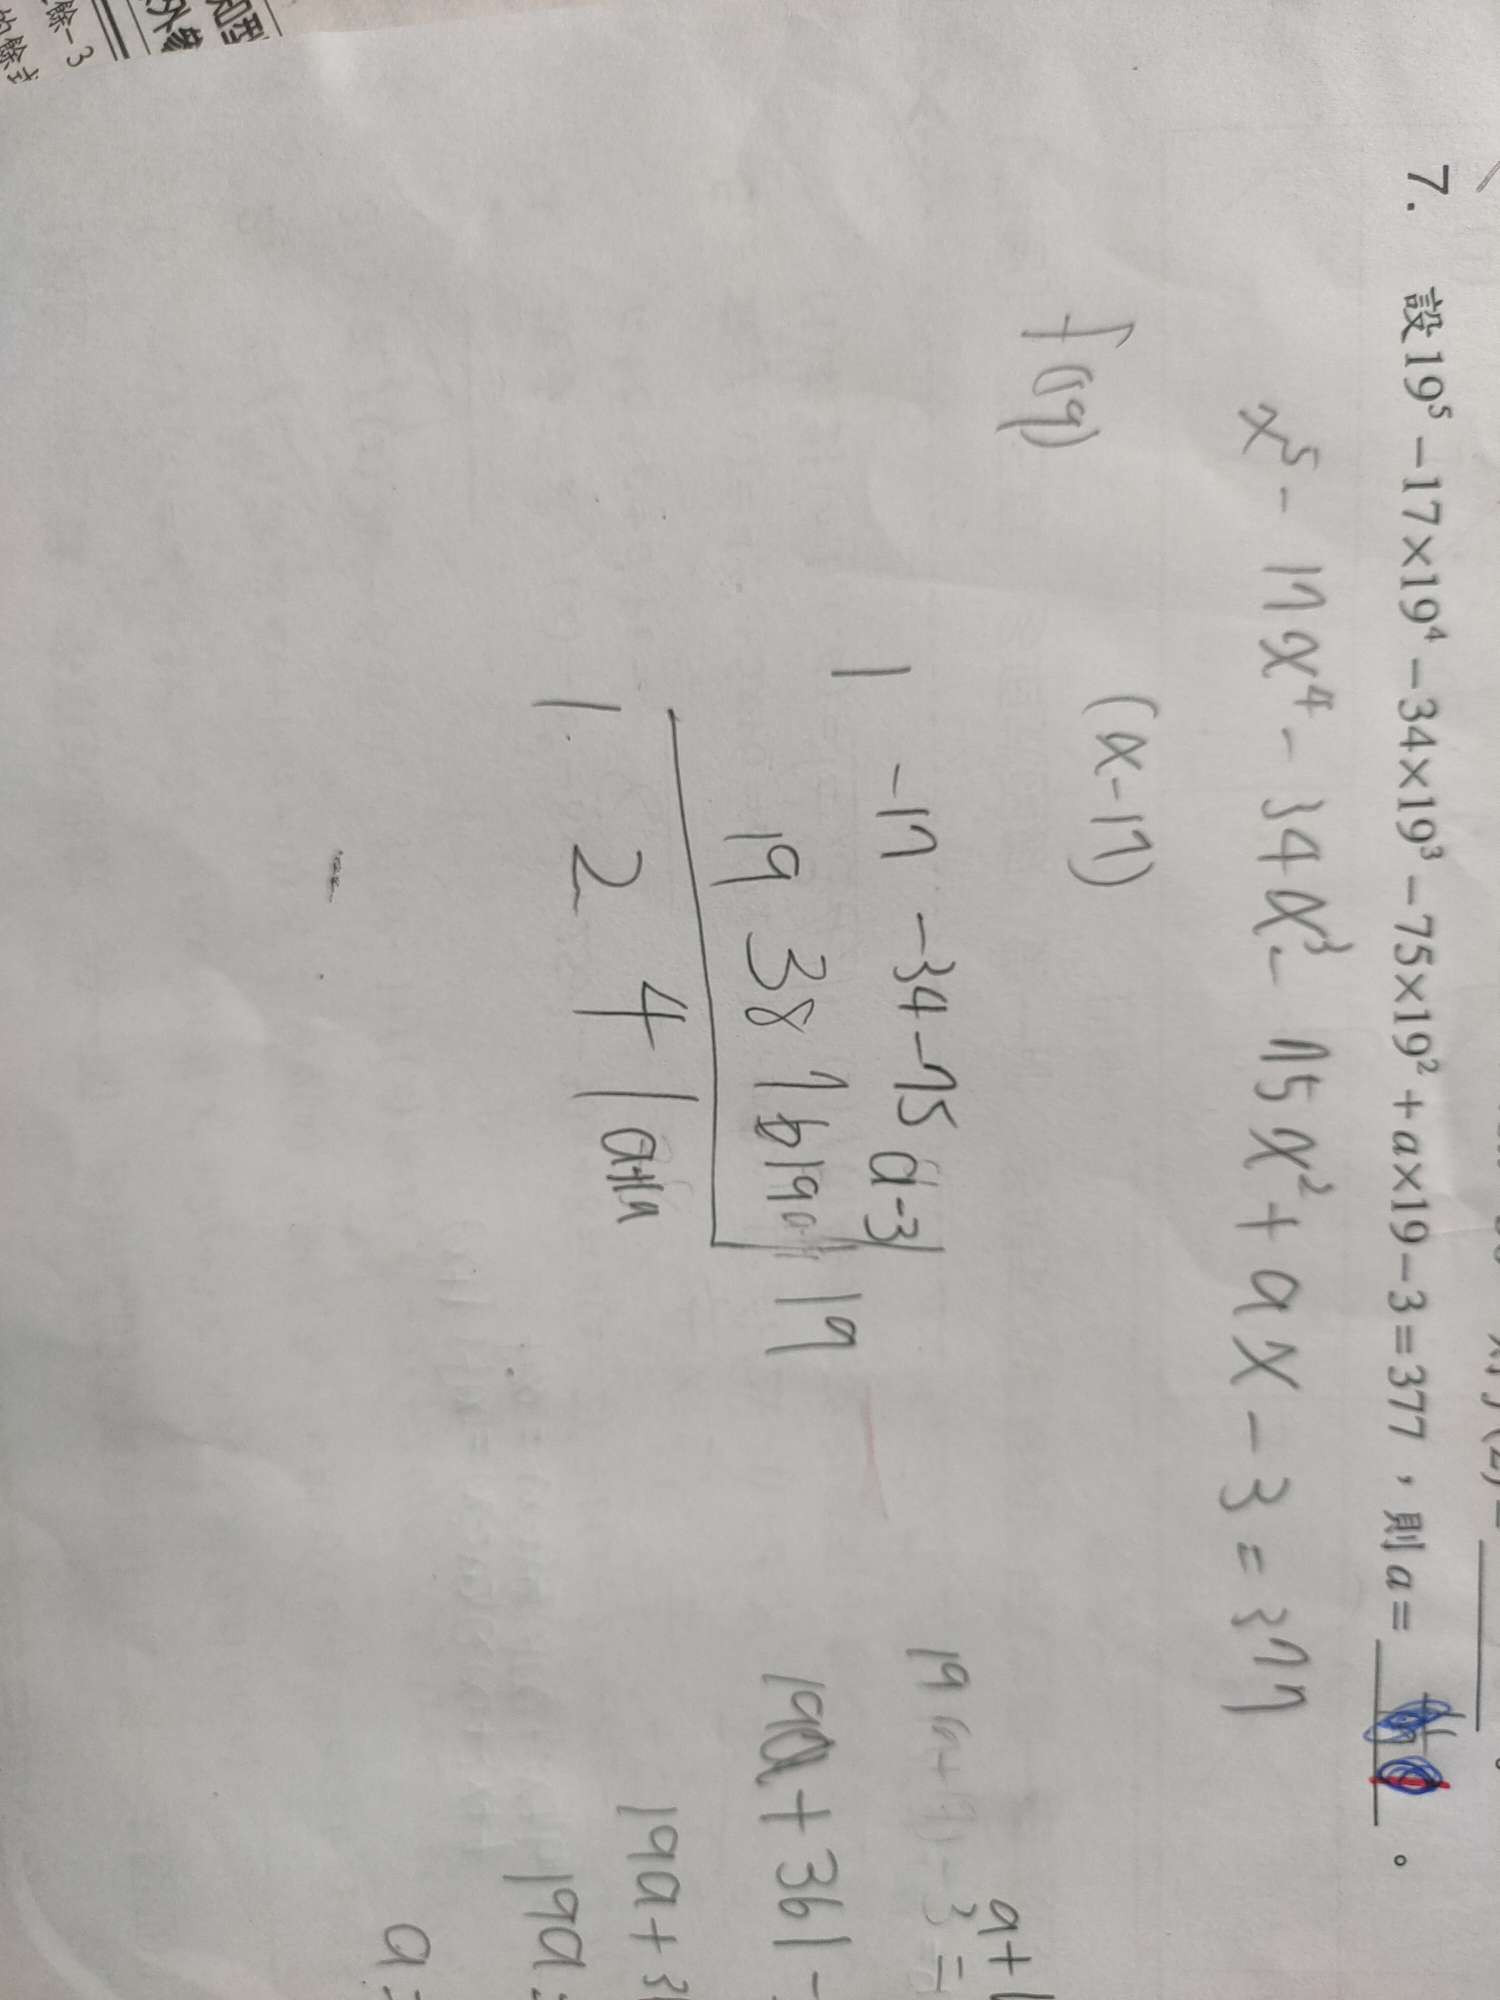 7. 設19⁵−17×19⁴−34×19³−75×19²+a×19−3=377，則a=______。
x⁵ - 17x⁴ - 34x³ - 75x² + ax - 3 = 377
f(19)
(x-17)
1 -17 -34 -75 a -3
19 38 76 19 19
1 2 4 1 a+19
a+1
19(a+19)-3=
19a+361-
19a+3
19a=
a=
餘-3
的餘式